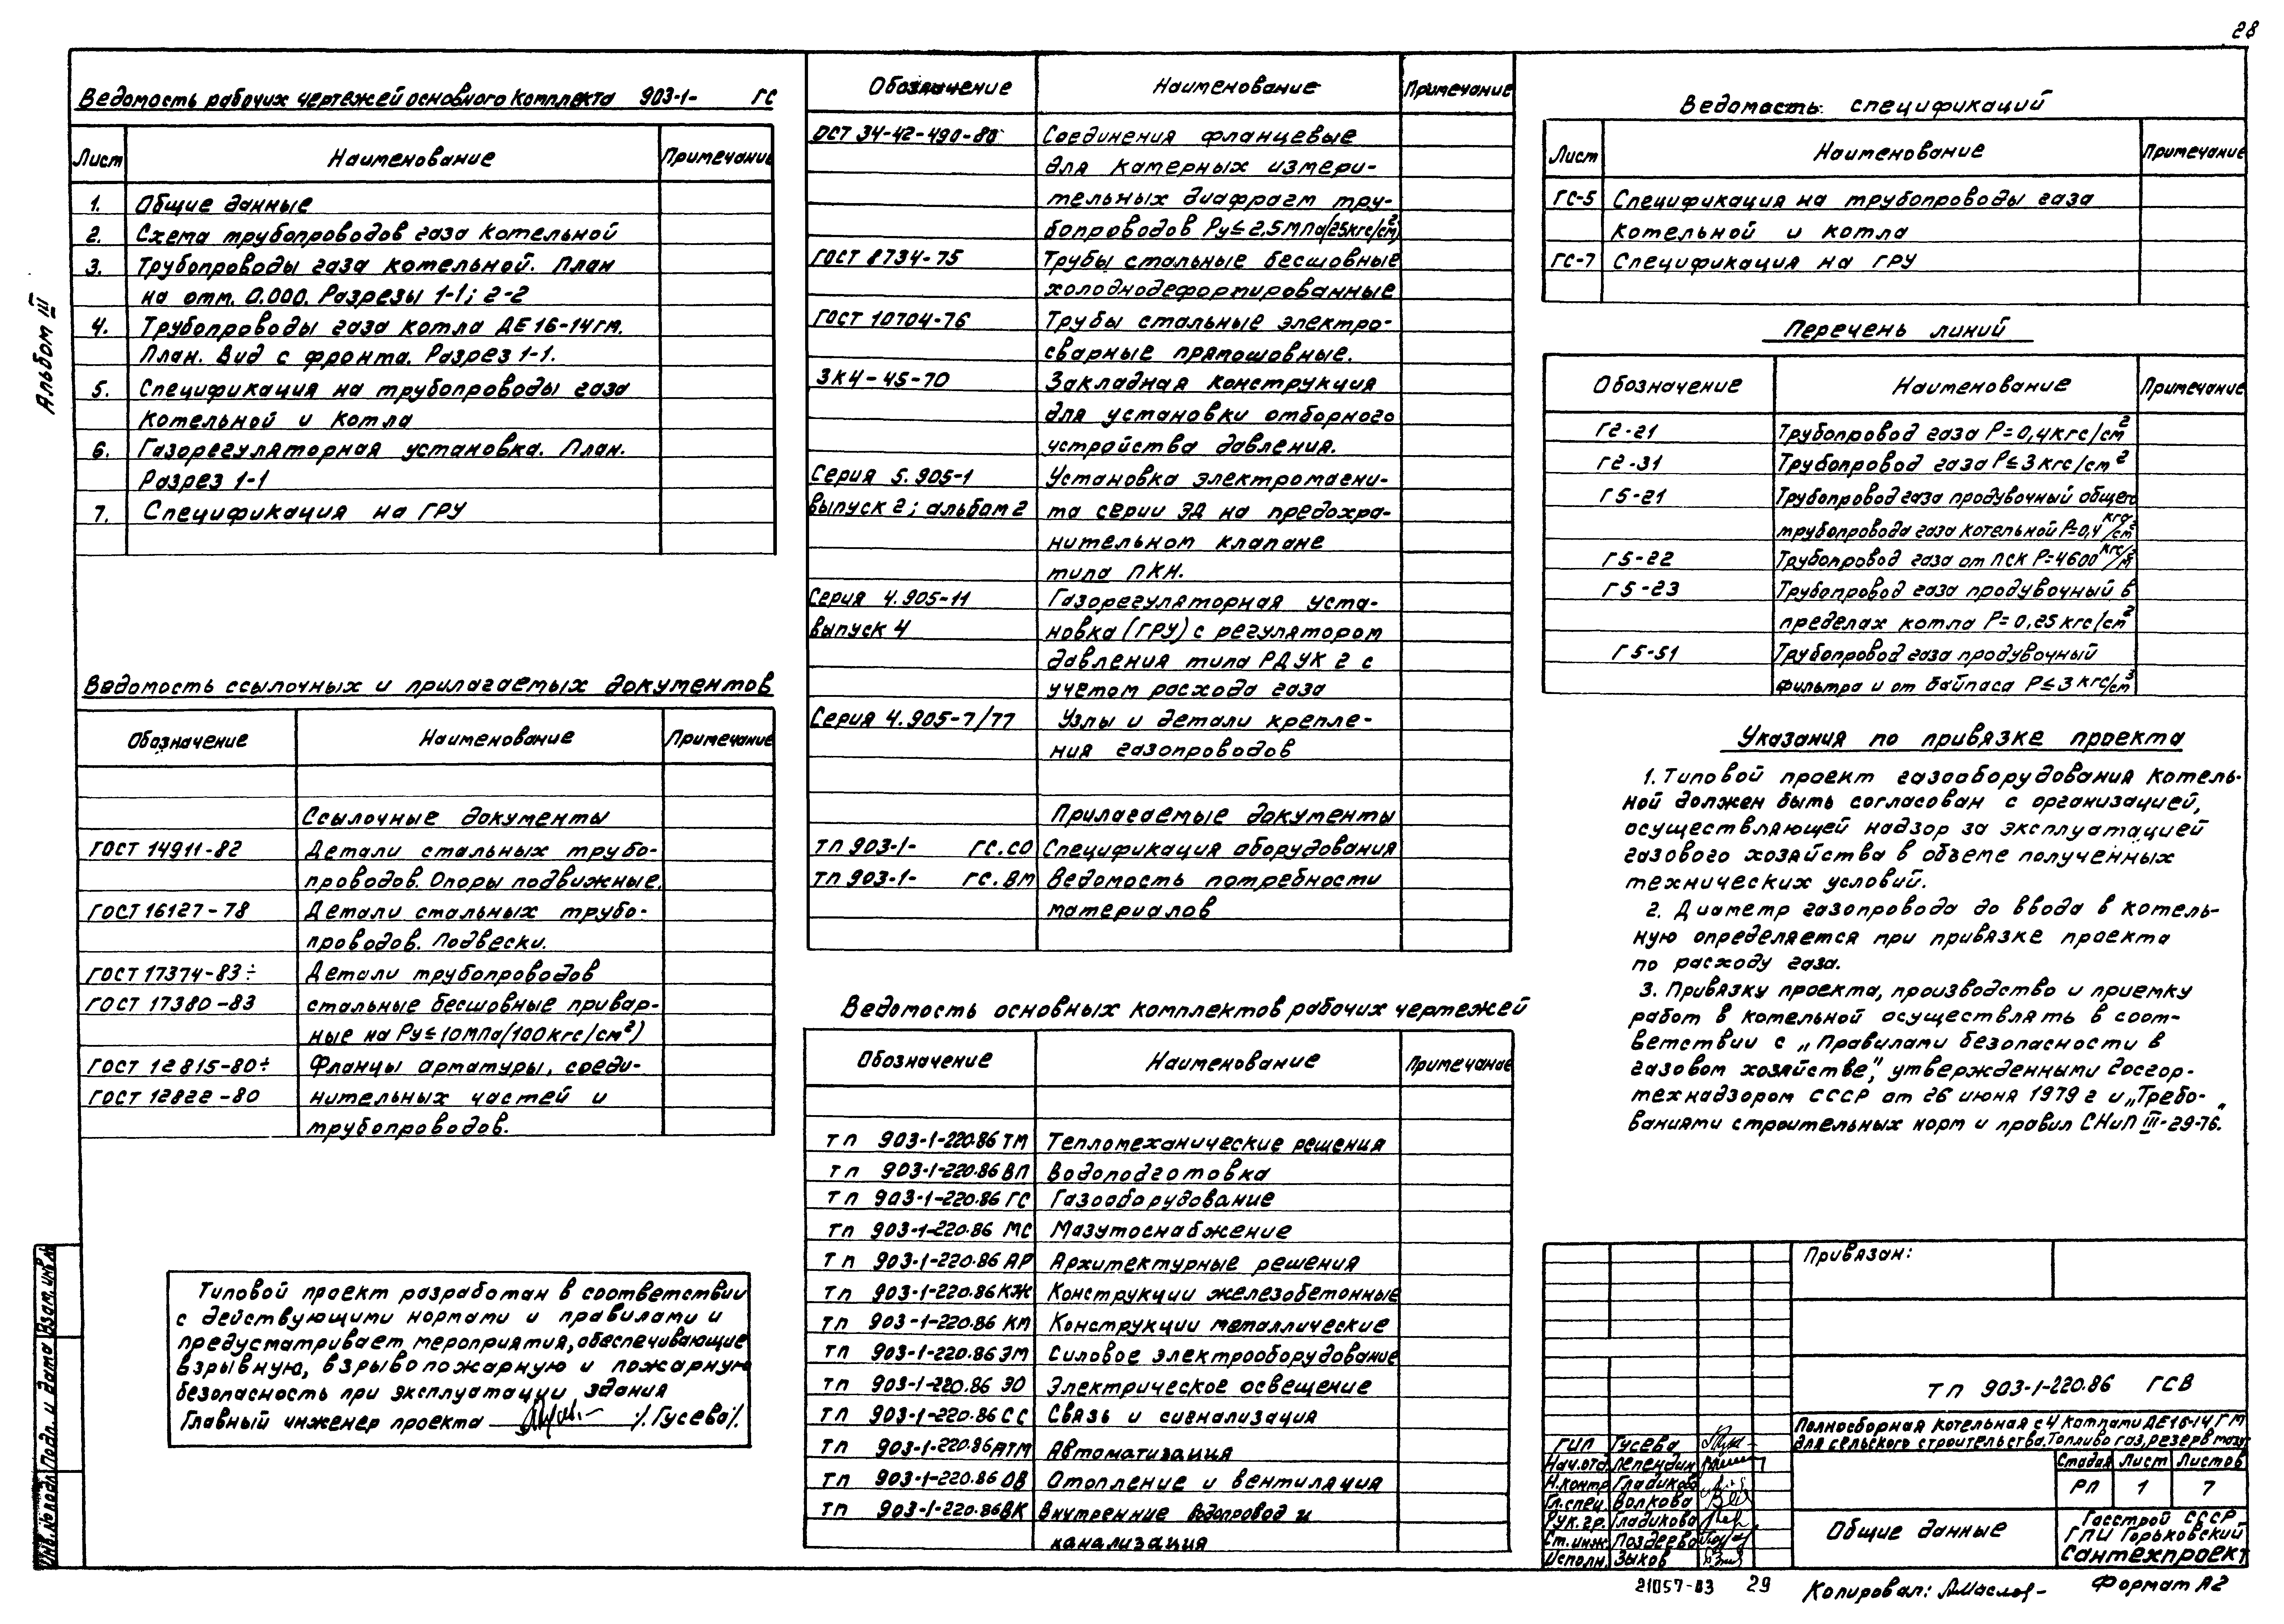 28
Альбом III
Ведомость рабочих чертежей основного комплекта 903-1- ГС
Лист Наименование Примечание
1. Общие данные
2. Схема трубопроводов газа котельной
3. Трубопроводы газа котельной. План
на отм. 0.000. Разрезы 1-1; 2-2
4. Трубопроводы газа котла ДЕ16-14гм.
План. Вид с фронта. Разрез 1-1.
5. Спецификация на трубопроводы газа
котельной и котла
6. Газорегуляторная установка. План.
Разрез 1-1
7. Спецификация на ГРУ
Ведомость ссылочных и прилагаемых документов
Обозначение Наименование Примечание
Ссылочные документы
ГОСТ 14911-82 Детали стальных трубо-
проводов. Опоры подвижные.
ГОСТ 16127-78 Детали стальных трубо-
проводов. Подвески.
ГОСТ 17374-83÷ Детали трубопроводов
ГОСТ 17380-83 стальные бесшовные привар-
ные на Ру≤10МПа(100кгс/см²)
ГОСТ 12815-80÷ Фланцы арматуры, соеди-
ГОСТ 12822-80 нительных частей и
трубопроводов.
Типовой проект разработан в соответствии
с действующими нормами и правилами и
предусматривает мероприятия, обеспечивающие
взрывную, взрывопожарную и пожарную
безопасность при эксплуатации здания
Главный инженер проекта /.Гусева/.
Инв.№ подл. Подп. и дата Взам. инв.№
Обозначение Наименование Примечание
ОСТ 34-42-490-80 Соединения фланцевые
для камерных измери-
тельных диафрагм тру-
бопроводов Ру≤2,5МПа(25кгс/см²)
ГОСТ 8734-75 Трубы стальные бесшовные
холоднодеформированные
ГОСТ 10704-76 Трубы стальные электро-
сварные прямошовные.
ЗК4-45-70 Закладная конструкция
для установки отборного
устройства давления.
Серия 5.905-1 Установка электромагни-
выпуск 2; альбом 2 та серии ЭД на предохра-
нительном клапане
типа ПКН.
Серия 4.905-11 Газорегуляторная уста-
выпуск 4 новка (ГРУ) с регулятором
давления типа РДУК 2 с
учетом расхода газа
Серия 4.905-7/77 Узлы и детали крепле-
ния газопроводов
Прилагаемые документы
ТП 903-1- ГС.СО Спецификация оборудования
ТП 903-1- ГС.ВМ Ведомость потребности
материалов
Ведомость основных комплектов рабочих чертежей
Обозначение Наименование Примечание
ТП 903-1-220.86 ТМ Тепломеханические решения
ТП 903-1-220.86 ВП Водоподготовка
ТП 903-1-220.86 ГС Газооборудование
ТП 903-1-220.86 МС Мазутоснабжение
ТП 903-1-220.86 АР Архитектурные решения
ТП 903-1-220.86 КЖ Конструкции железобетонные
ТП 903-1-220.86 КМ Конструкции металлические
ТП 903-1-220.86 ЭМ Силовое электрооборудование
ТП 903-1-220.86 ЭО Электрическое освещение
ТП 903-1-220.86 СС Связь и сигнализация
ТП 903-1-220.86 АТМ Автоматизация
ТП 903-1-220.86 ОВ Отопление и вентиляция
ТП 903-1-220.86 ВК Внутренние водопровод и
канализация
Ведомость спецификаций
Лист Наименование Примечание
ГС-5 Спецификация на трубопроводы газа
котельной и котла
ГС-7 Спецификация на ГРУ
Перечень линий
Обозначение Наименование Примечание
Г2-21 Трубопровод газа Р=0,4кгс/см²
Г2-31 Трубопровод газа Р≤3кгс/см²
Г5-21 Трубопровод газа продувочный общего
трубопровода газа котельной Р=0,4 кгс/см²
Г5-22 Трубопровод газа от ПСК Р=4600 кгс/м²
Г5-23 Трубопровод газа продувочный в
пределах котла Р=0,25кгс/см²
Г5-51 Трубопровод газа продувочный
фильтра и от байпаса Р≤3кгс/см³
Указания по привязке проекта
1. Типовой проект газооборудования котель-
ной должен быть согласован с организацией,
осуществляющей надзор за эксплуатацией
газового хозяйства в объеме полученных
технических условий.
2. Диаметр газопровода до ввода в котель-
ную определяется при привязке проекта
по расходу газа.
3. Привязку проекта, производство и приемку
работ в котельной осуществлять в соот-
ветствии с „Правилами безопасности в
газовом хозяйстве", утвержденными Госгор-
технадзором СССР от 26 июня 1979 г и „Требо-
ваниями строительных норм и правил СНиП III-29-76."
Привязан:
ТП 903-1-220.86 ГСВ
Полносборная котельная с 4 котлами ДЕ16-14 ГМ
для сельского строительства. Топливо газ, резерв мазут
ГИП Гусева
Нач.отд Лепендин
Н.контр Гладикова
Гл.спец Волкова
Рук.гр. Гладикова
Ст.инж Поздеева
Исполн. Зыков
Стадия Лист Листов
РП 1 7
Общие данные
Госстрой СССР
ГПИ Горьковский
Сантехпроект
21057-03 29 Копировал: Маслов- Формат А2